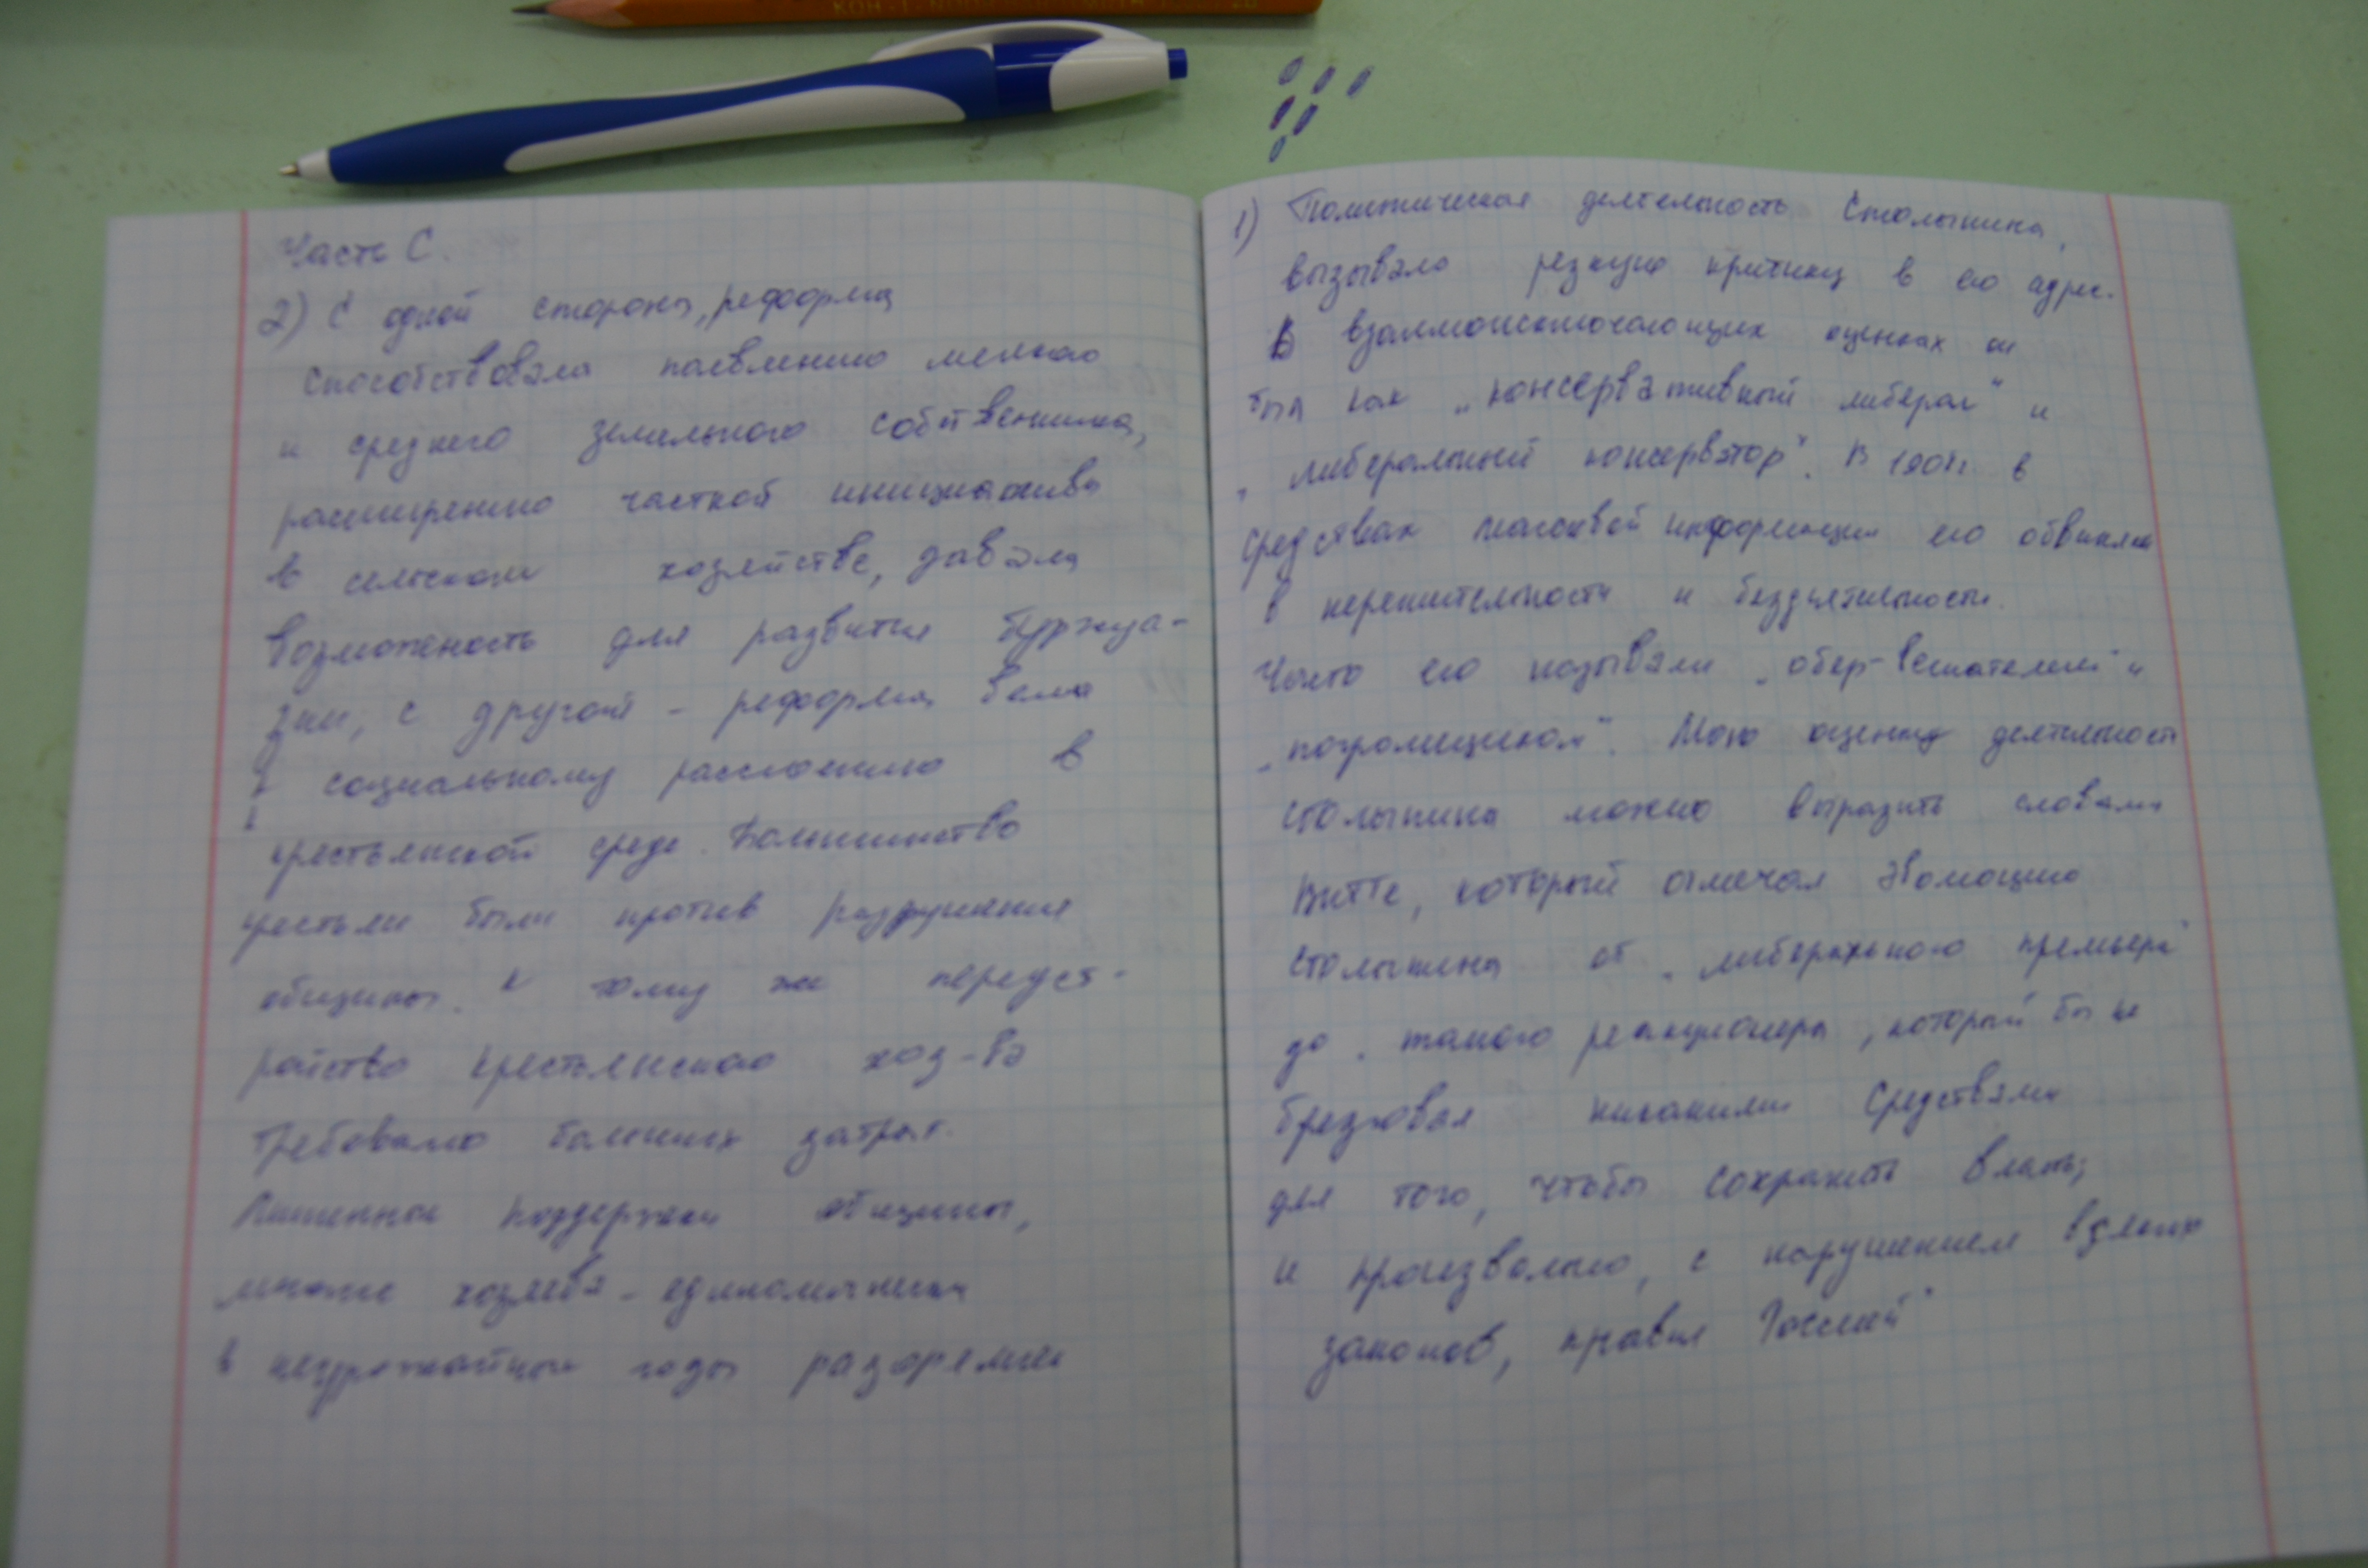 Часть С.
2) С одной стороны, реформа
способствовала появлению мелкого
и среднего земельного собственника,
расширению частной инициативы
в сельском хозяйстве, давала
возможность для развития буржуа-
зии, с другой - реформа вела
к социальному расслоению в
крестьянской среде. Большинство
крестьян были против разрушения
общины. К тому же переуст-
ройство крестьянского хоз-ва
требовало больших затрат.
Лишенные поддержки общины,
многие хозяева - единоличники
в неурожайные годы разорялись
1) Политическая деятельность Столыпина,
вызывала резкую критику в его адрес.
В взаимоисключающих оценках он
был как „консервативный либерал" и
„либеральный консерватор". В в
средствах массовой информации его обвиняли
в нерешительности и бездеятельности.
Часто его называли „обер-вешателем" и
„погромщиком". Мою оценку деятельности
Столыпина можно выразить словами
Витте, который отмечал эволюцию
Столыпина от „либерального премьера"
до „такого реакционера, который бы не
брезговал никакими средствами
для того, чтобы сохранить власть;
и произвольно, с нарушением всяких
законов, правил Россией"